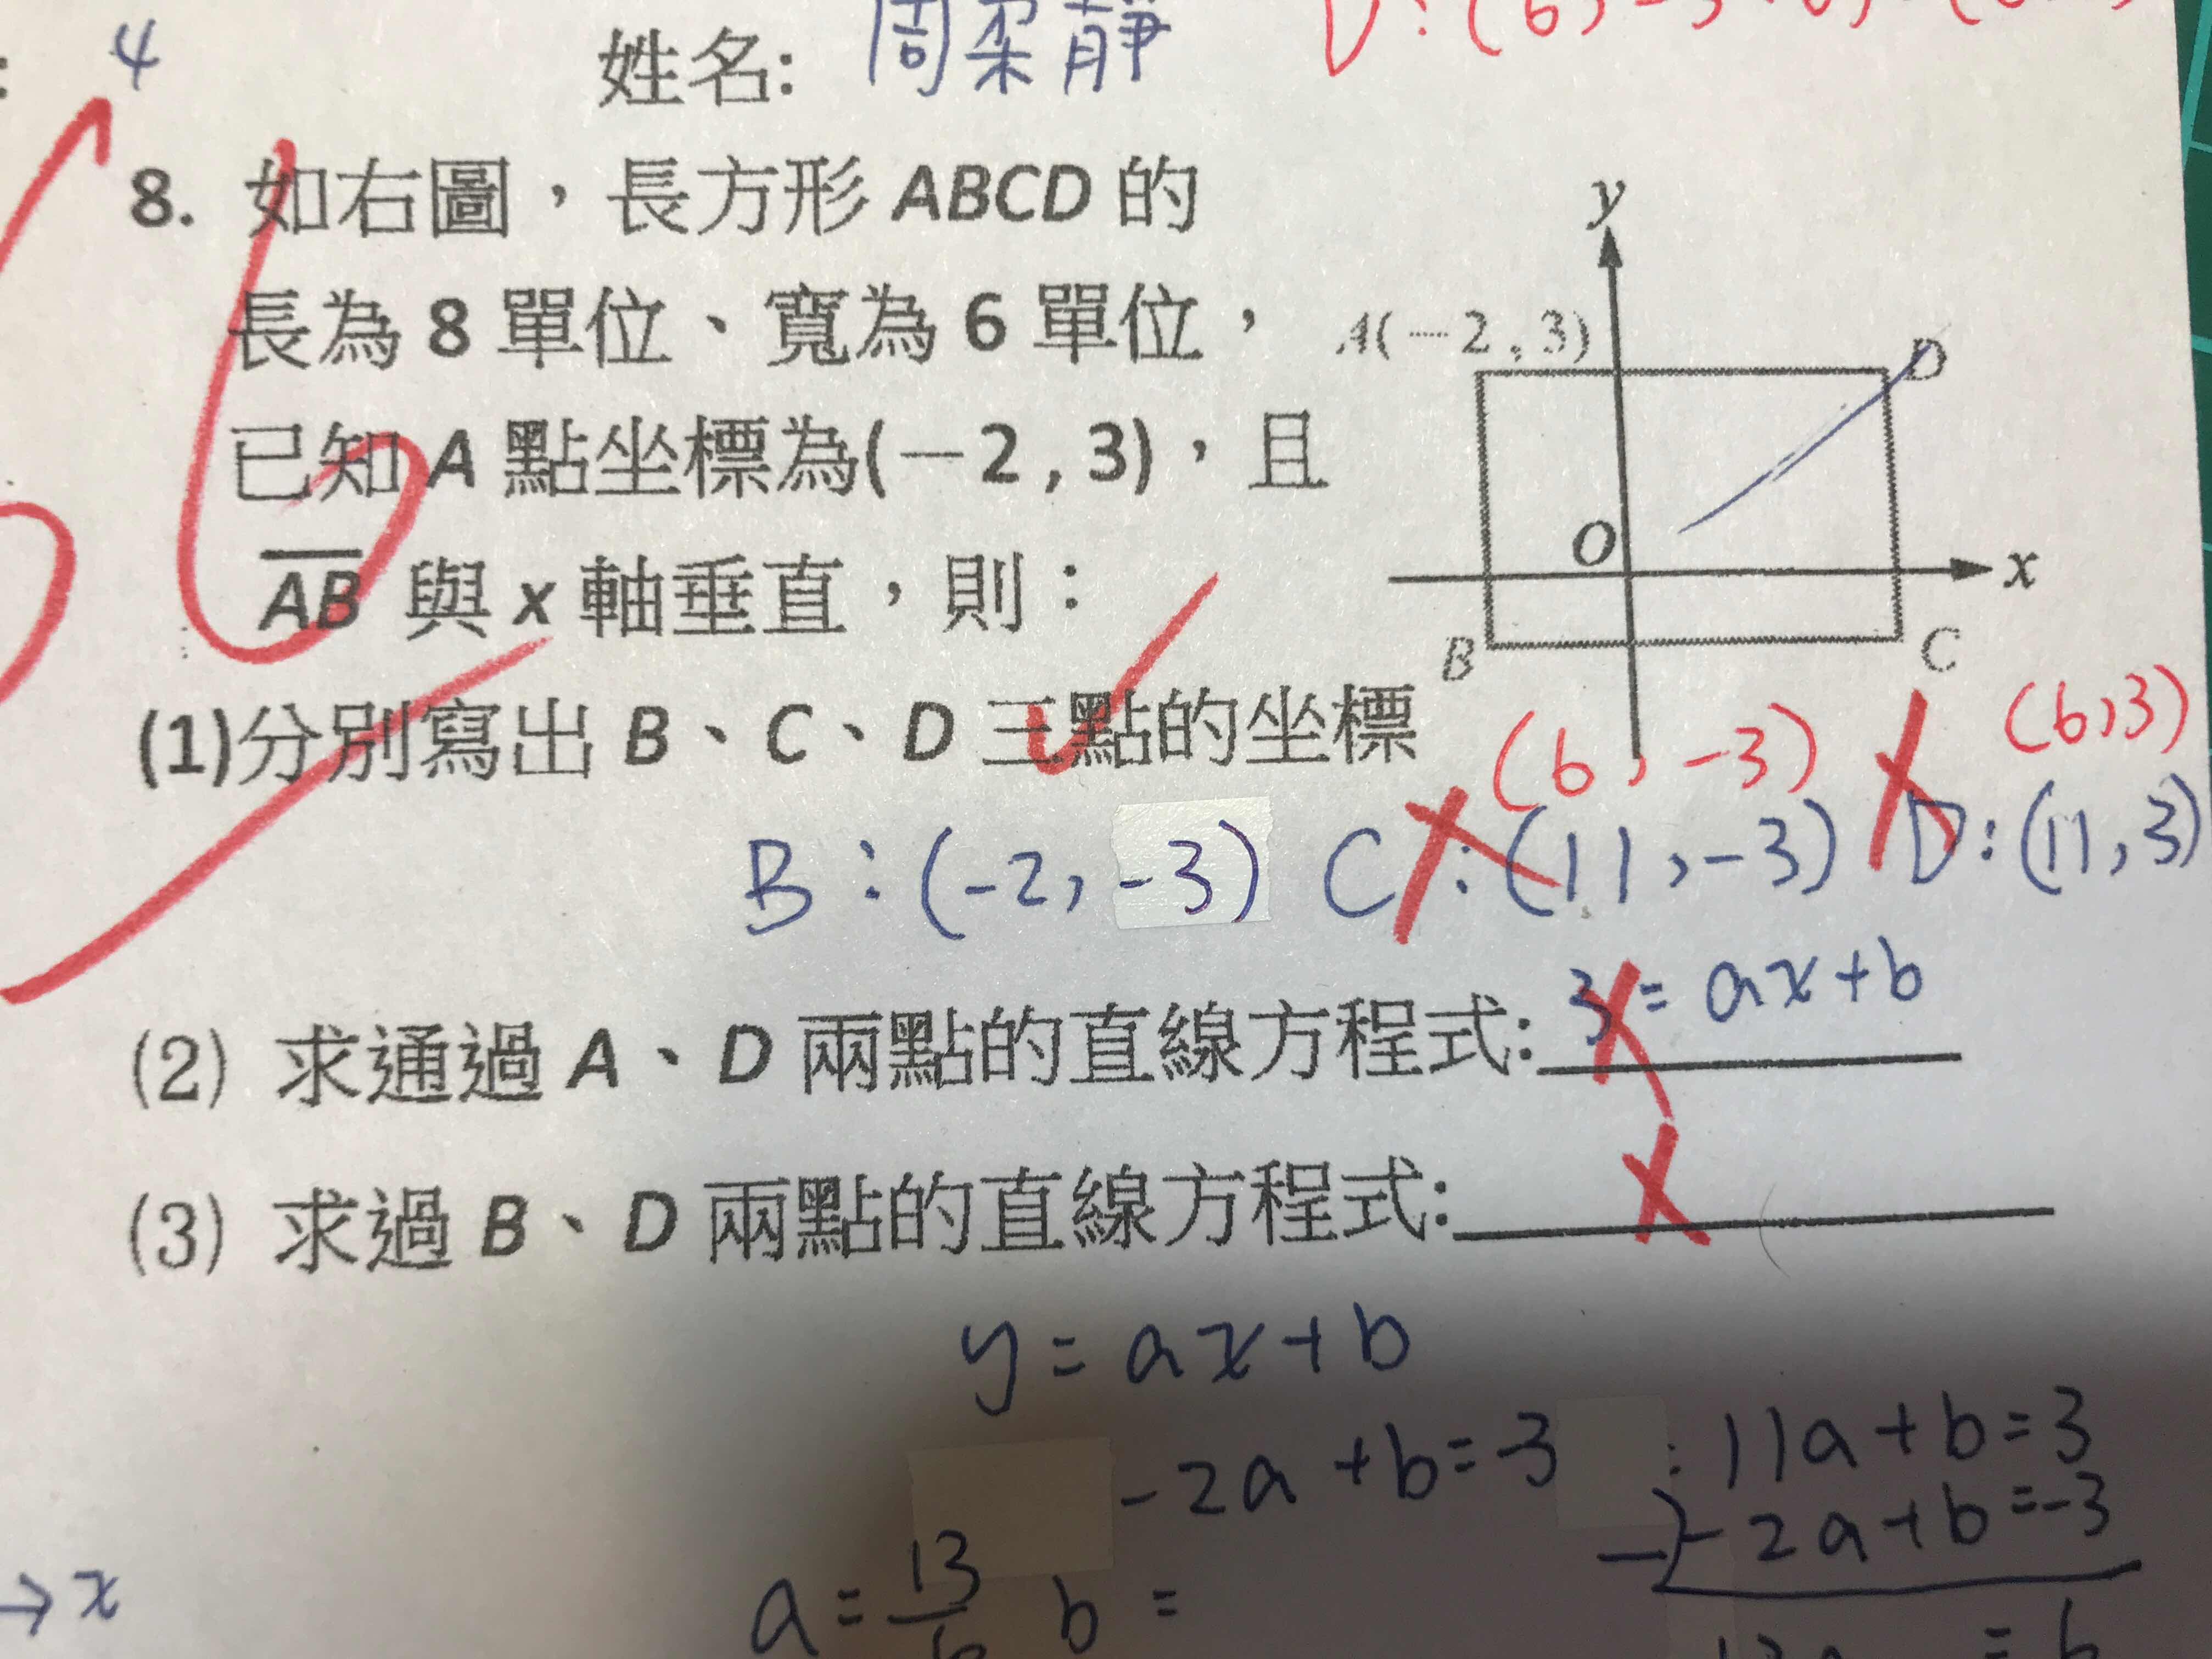 4 姓名: 周柔靜
8. 如右圖，長方形 ABCD 的
長為 8 單位、寬為 6 單位，
已知 A 點坐標為(－2 , 3)，且
AB 與 x 軸垂直，則：
y
A(－2 , 3)
D
O
x
B
C
(1)分別寫出 B、C、D 三點的坐標
(6, -3) (6,3)
B:(-2, -3) C:(11,-3) D:(11,3)
(2) 求通過 A、D 兩點的直線方程式: 3=ax+b
(3) 求過 B、D 兩點的直線方程式:
y=ax+b
-2a+b=-3
11a+b=3
-) -2a+b=-3
a=13/6 b=
=6
→x